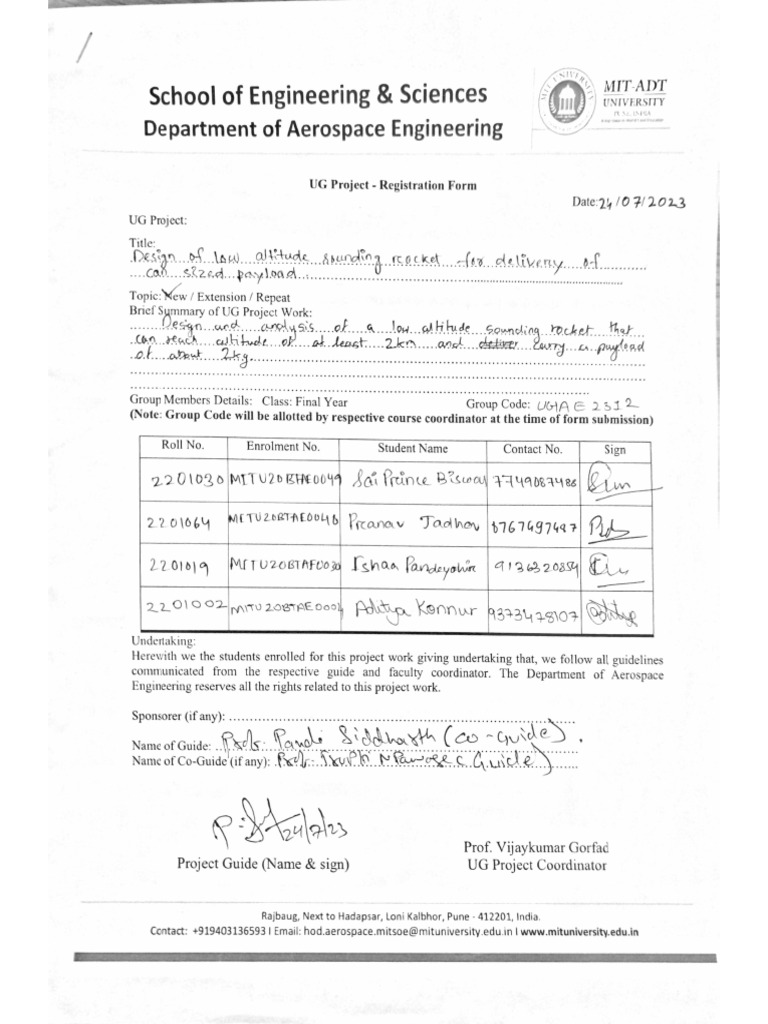 School of Engineering & Sciences
Department of Aerospace Engineering
MIT-ADT
UNIVERSITY
PUNE, INDIA
UG Project - Registration Form
Date: 24/07/2023
UG Project:
Title:
Design of low altitude sounding rocket for delivery of
can sized payload
Topic: New / Extension / Repeat
Brief Summary of UG Project Work:
Design and analysis of a low altitude sounding rocket that
can reach altitude of at least 2km and deliver carry a payload
of about 2kg.
Group Members Details: Class: Final Year Group Code: UGAE2312
(Note: Group Code will be allotted by respective course coordinator at the time of form submission)
Roll No. Enrolment No. Student Name Contact No. Sign
2201030 MITU20BTAE0049 Sai Prince 7749087486
2201064 MITU20BTAE0040 Pranav Jadhav 8767497487
2201019 MITU20BTAE0030 Ishaa 9136320854
2201002 MITU20BTAE0004 Aditya Konnur 9373478107
Undertaking:
Herewith we the students enrolled for this project work giving undertaking that, we follow all guidelines
communicated from the respective guide and faculty coordinator. The Department of Aerospace
Engineering reserves all the rights related to this project work.
Sponsorer (if any):
Name of Guide: Prof. Siddharth (Co-Guide).
Name of Co-Guide (if any): Prof. Trupti N Pawase (Guide)
24/7/23
Project Guide (Name & sign)
Prof. Vijaykumar Gorfad
UG Project Coordinator
Rajbaug, Next to Hadapsar, Loni Kalbhor, Pune - 412201, India.
Contact: +919403136593 I Email: hod.aerospace.mitsoe@mituniversity.edu.in I www.mituniversity.edu.in